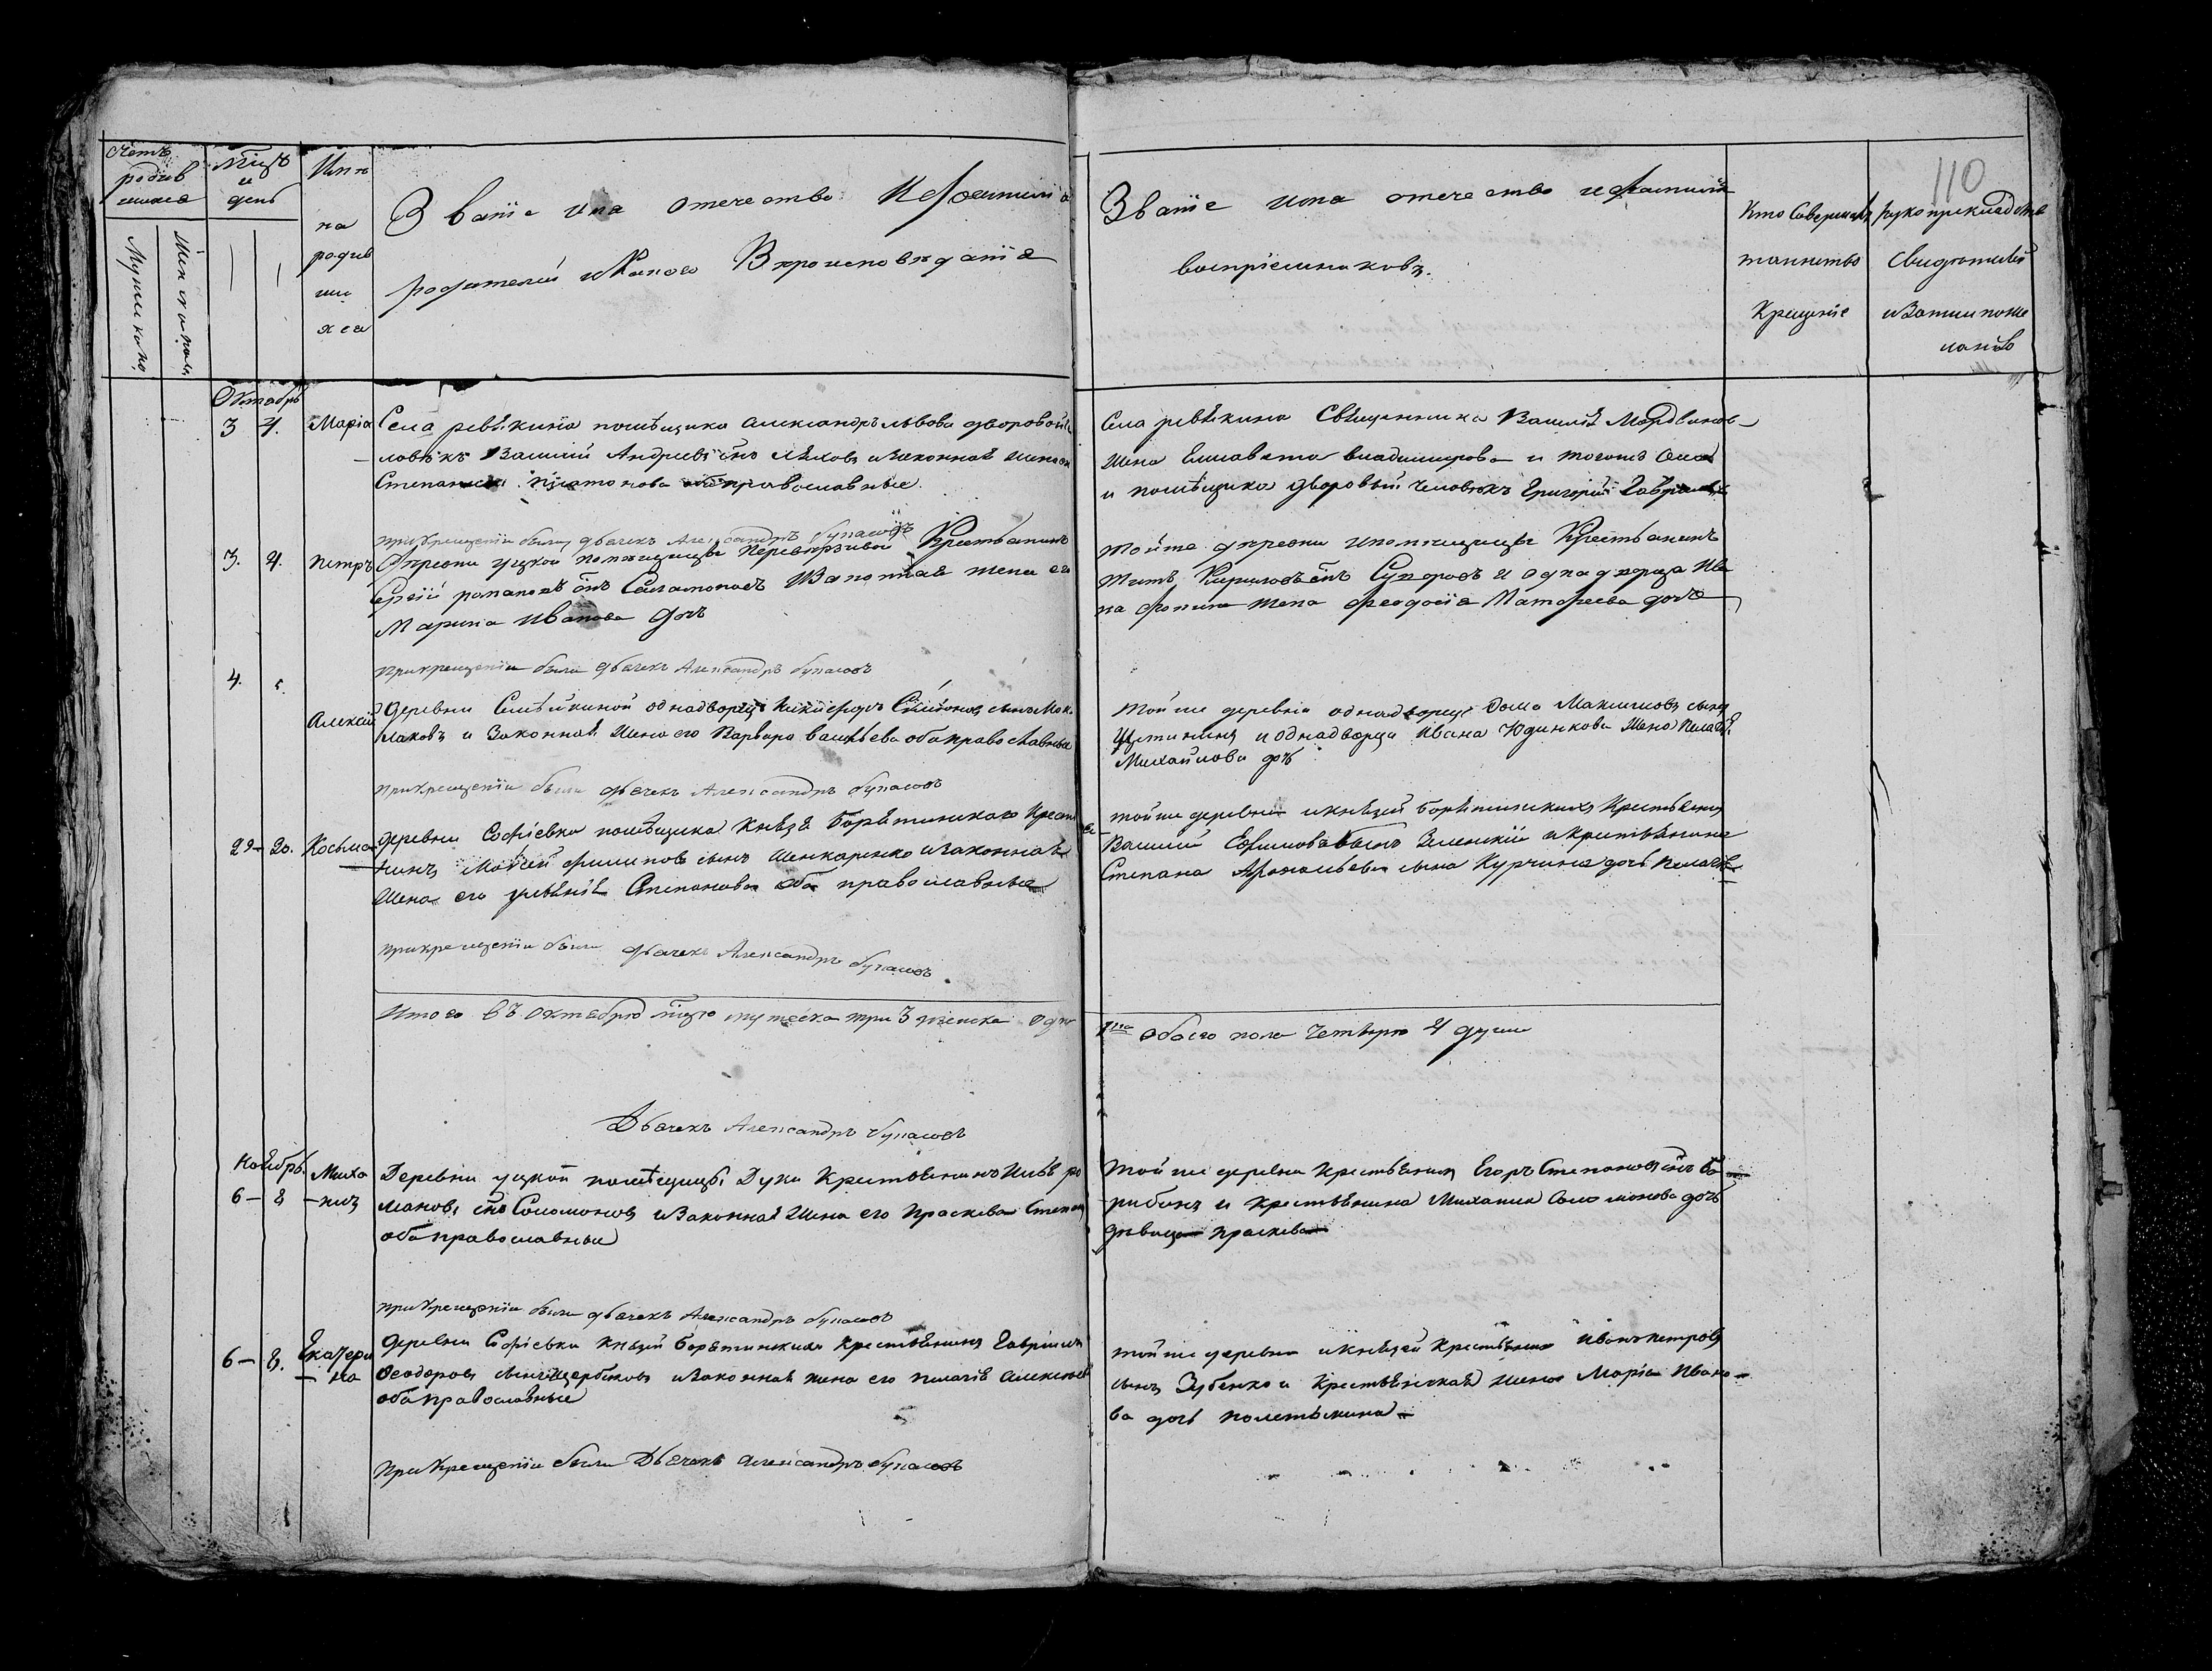 110
Счетъ
родив
шихся
Мцъ
и
день
Имя
на
родив
ши
хся
Мужеска
Женска пола
Званіе имя отечество и фамилія
родителей и какого вѣроисповѣданія
Званіе имя отечество и фамилія
воспріемниковъ.
Кто совершалъ
таинство
Крещенія
рукоприкладство
свидѣтелей
Октябрь
3 4. Марія
Села ревякина помѣщика Александръ Львова дворовой че
ловѣкъ Василий Андреевъ снъ и законная жена его
Степанида Платонова оба православные
Села ревякина Священника Василія Мордвинова
жена Елисавета Владимирова и тогожъ села
и помѣщика дворовый человѣкъ Григорій Гаврилов
при крещеніи были дьячекъ Александръ
3. 4. Петръ
Деревни узкой помѣщицы Крестьянинъ
Сергій романовъ снъ Саламоновъ и законная жена его
Марина Иванова дочь
той же деревни и помѣщицы Крестьянинъ
Титъ Кириловъ снъ и однодворца Ива
на Фомина жена Феодосія Матфеева дочь
при крещеніи были дьячекъ Александръ
4. 5.
Алексій
Деревни однадворецъ Никифоръ Симіоновъ сынъ
лаковъ и законная жена его Варвара Васильева оба православные
той же деревни однадворец Фома Максимовъ сынъ
Устининъ и однадворца Ивана Юдинкова жена Пелагія
Михайлова дочь
при крещеніи были дьячекъ Александръ
29 – 30. Косьма
деревни Софіевки помѣщика Князя Борятинскаго Крестья
нинъ Мовсей Филиповъ сынъ Шенкаренко и законная
жена его Степанова оба православные
той же деревни и князей Борятинскихъ Крестьянинъ
Василий Ефимовъ сынъ Зеленскій и крестьянина
Степана сына Курчина дочь Пелагія
при крещеніи были дьячекъ Александръ
Итого въ октябрѣ мцѣ мужеска три 3 женска одна
1на обоего пола четыре 4 души
Дьячекъ Александръ
Ноябрь.
6 – 8 Миха
–илъ
Деревни узкой помѣщицы Дуки Крестьянинъ Илья ро
мановъ снъ Соломоновъ и законная жена его Праскева Степан
оба православные
той же деревни крестьянинъ Егоръ Степановъ снъ Ба
рибинъ и крестьянина Михаила Соломонова дочь
дѣвица праскева
при крещеніи были дьячекъ Александръ
6 – 8. Екатери
на
деревни Софіевки Князей Борятинскихъ крестьянинъ Гавріилъ
Феодоровъ сынъ Щербаковъ и законная жена его пелагія Алексѣев
оба православные
той же деревни и князей крестьянинъ Иванъ Петровъ
сынъ Зубенко и крестьянская жена Марія Ивано–
ва дочь
при крещеніи были Дьячекъ Александръ